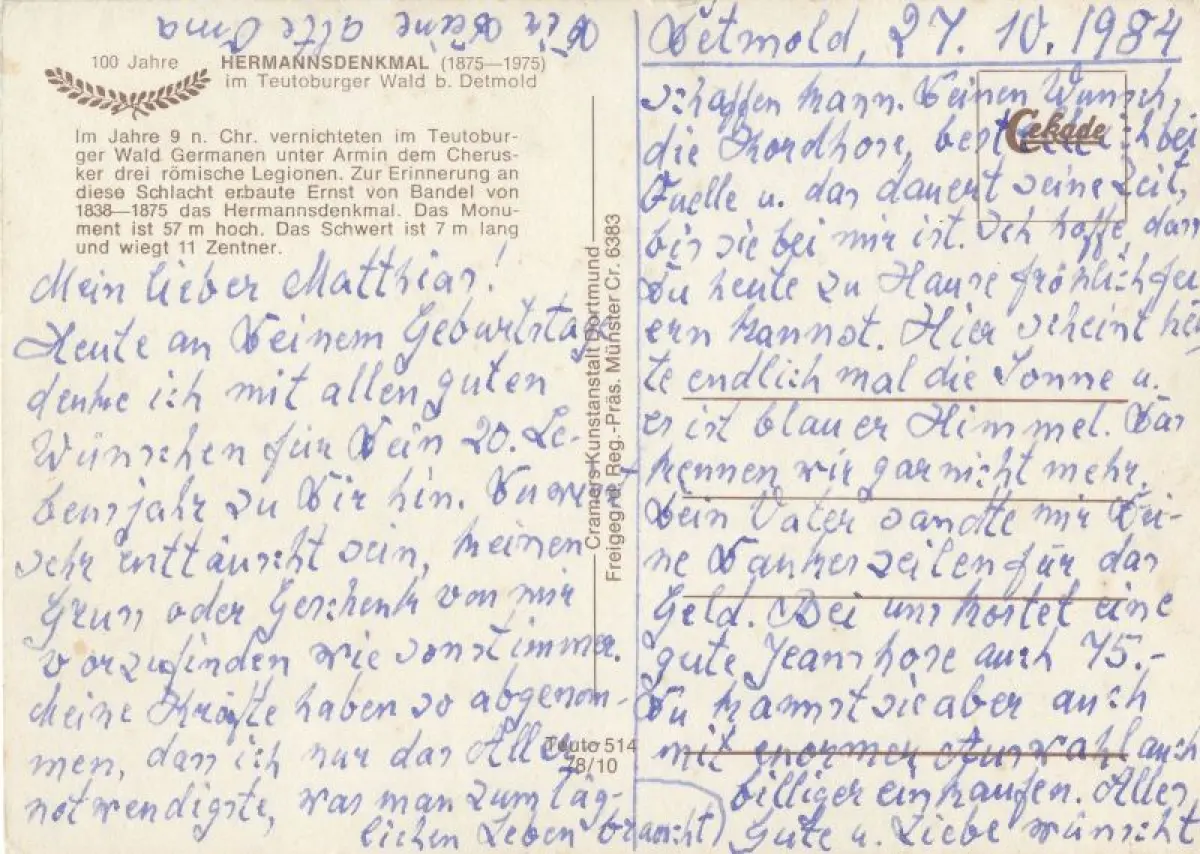 100 Jahre HERMANNSDENKMAL (1875—1975)
im Teutoburger Wald b. Detmold
Im Jahre 9 n. Chr. vernichteten im Teutobur-
ger Wald Germanen unter Armin dem Cherus-
ker drei römische Legionen. Zur Erinnerung an
diese Schlacht erbaute Ernst von Bandel von
1838—1875 das Hermannsdenkmal. Das Monu-
ment ist 57 m hoch. Das Schwert ist 7 m lang
und wiegt 11 Zentner.
Mein lieber Matthias!
Heute an Deinem Geburtstag
denke ich mit allen guten
Wünschen für Dein 20. Le-
bensjahr zu Dir hin. Du wirst
sehr enttäuscht sein, keinen
Gruss oder Geschenk von mir
vorzufinden wie sonst immer.
Meine Kräfte haben so abgenom-
men, dass ich nur das Aller
notwendigste, was man zum täg-
lichen Leben braucht)
Cramers Kunstanstalt Dortmund
Freigeg. d. Reg.-Präs. Münster Cr. 6383
Teuto 514
78/10
Detmold, 27. 10. 1984
Cekade
schaffen kann. Deinen Wunsch,
die Kordhose, bestelle ich bei
Quelle u. das dauert seine Zeit,
bis sie bei mir ist. Ich hoffe, dass
Du heute zu Hause fröhlich fei
ern kannst. Hier scheint heu
te endlich mal die Sonne u.
es ist blauer Himmel. Das
kennen wir garnicht mehr.
Dein Vater sandte mir Dei-
ne Dankeszeilen für das
Geld. Bei uns kostet eine
gute Jeanshose auch 75.-
Du kannst sie aber auch
mit enormer Auswahl auch
billiger einkaufen. Alles
Gute u. Liebe wünscht
Dir Deine alte Oma